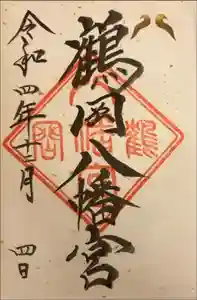 鶴岡八幡宮
令和四年十一月四日
鶴岡八幡宮